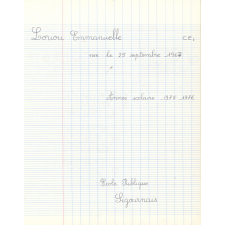 Louou Emmanuelle CE₁
née le 29 septembre 196
Année scolaire 1975 1976
École Publique
Sigournais